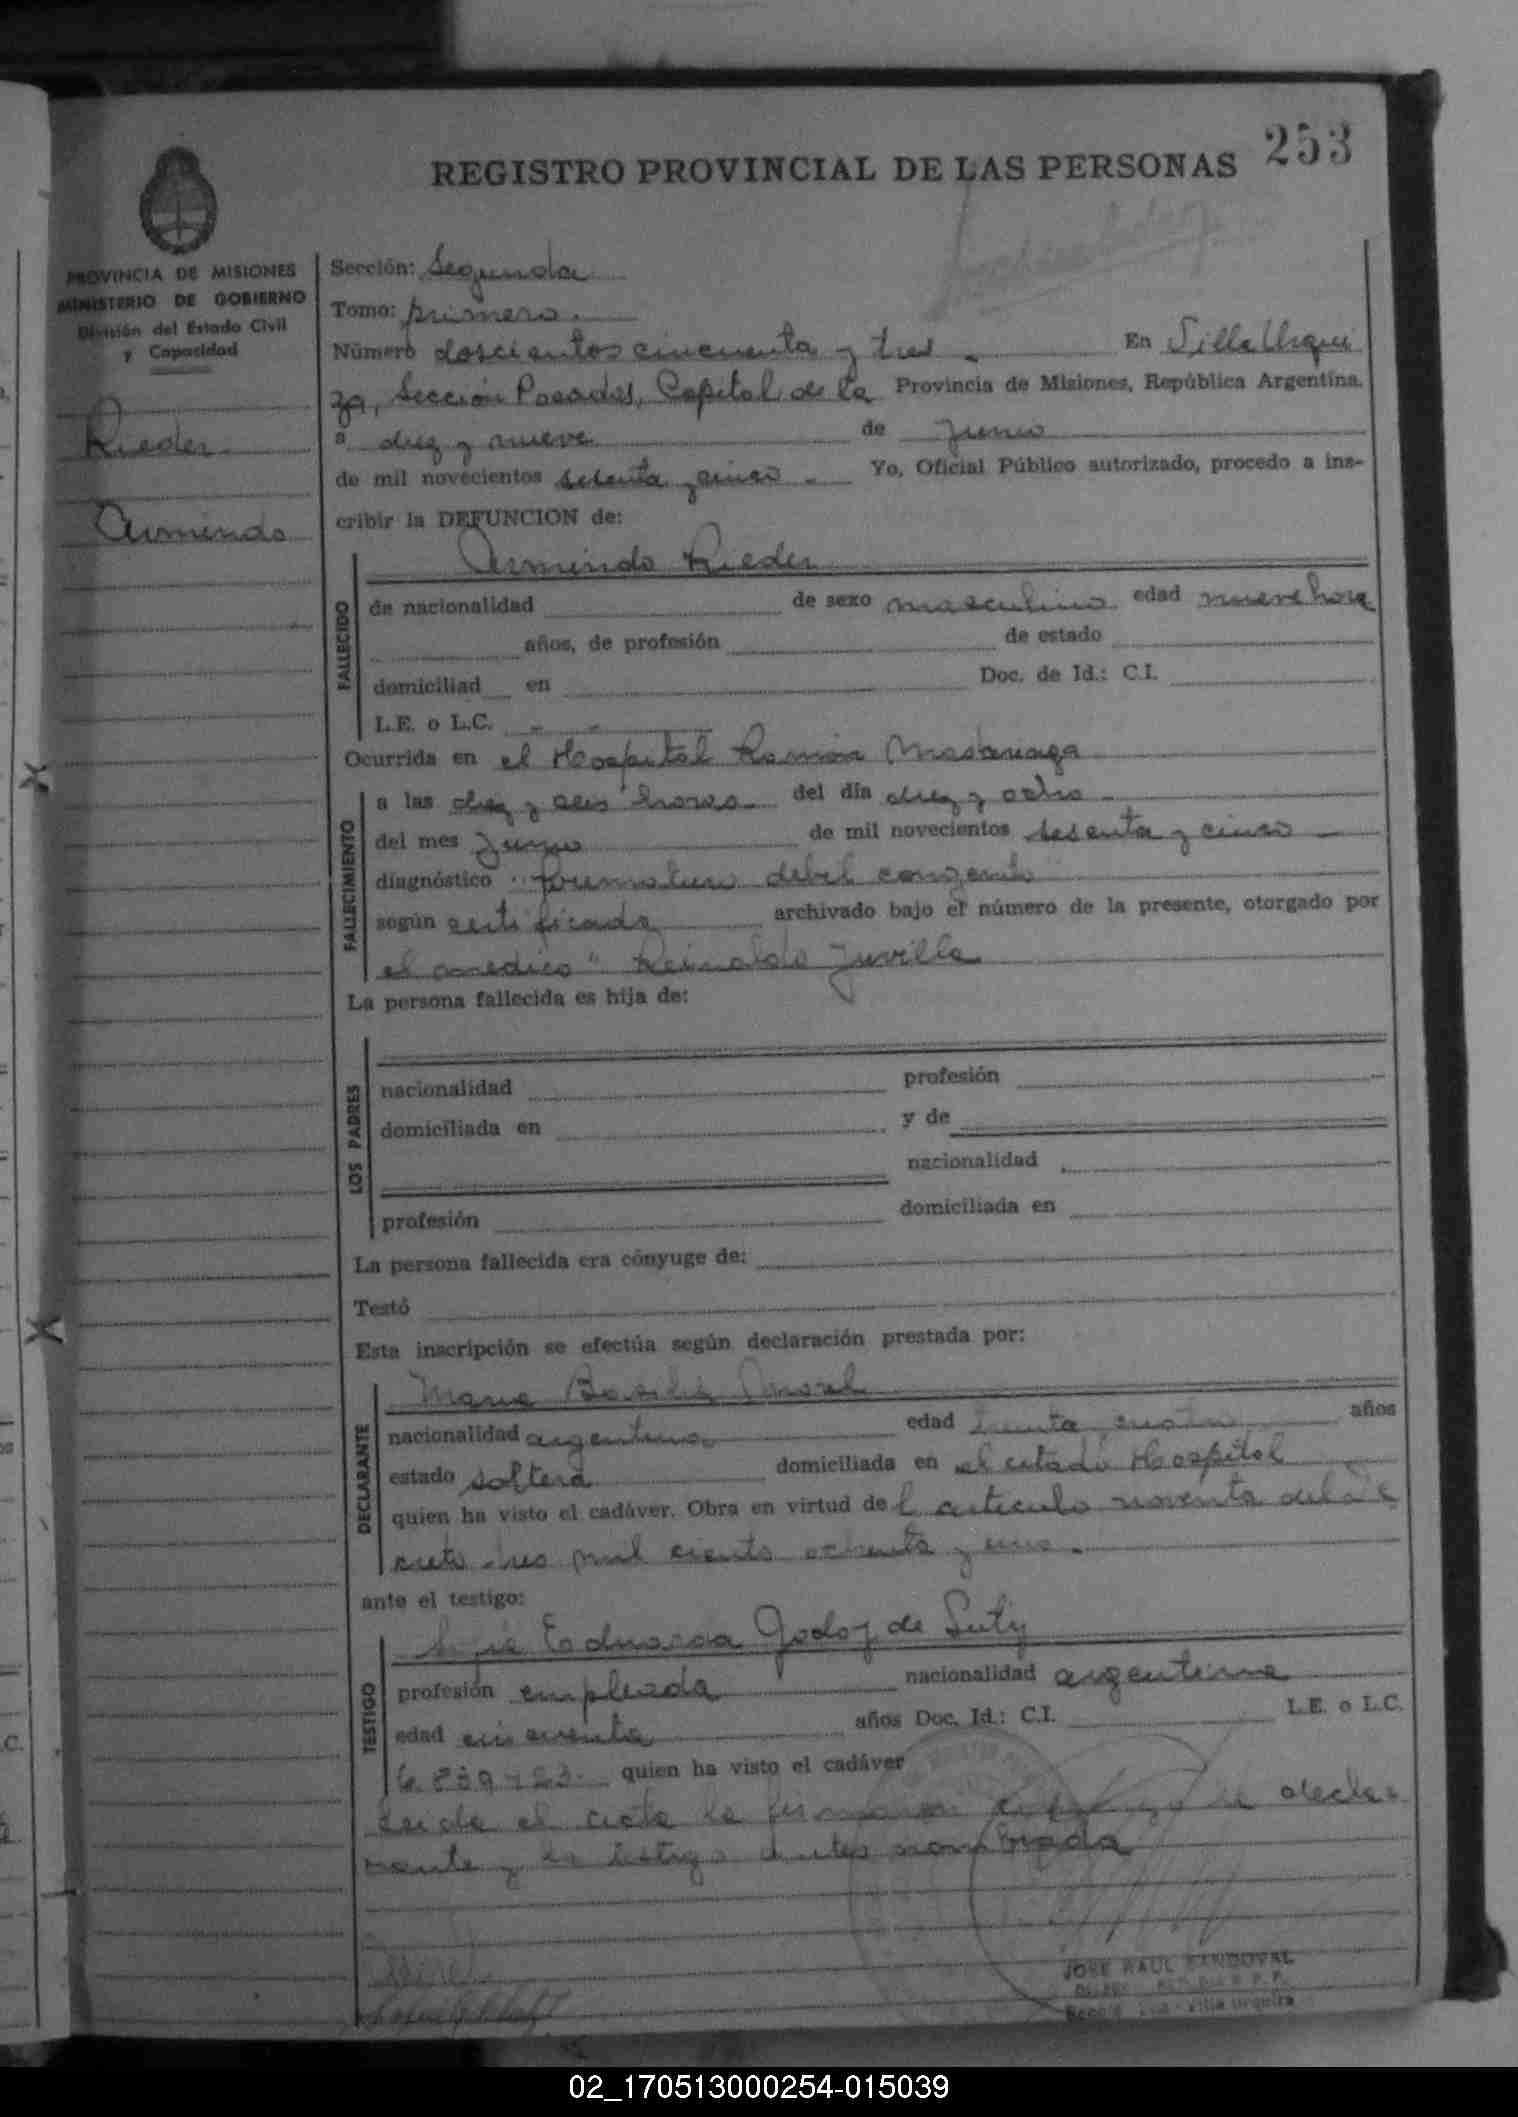 253
REGISTRO PROVINCIAL DE LAS PERSONAS
PROVINCIA DE MISIONES
MINISTERIO DE GOBIERNO
División del Estado Civil
y Capacidad
Rieder
Armindo
Sección: Segunda
Tomo: primero.
Número doscientos cincuenta y tres. En Villa Urqui
za, Sección Posadas, Capital de la Provincia de Misiones, República Argentina,
a diez y nueve de Junio
de mil novecientos sesenta y cinco. Yo, Oficial Público autorizado, procedo a ins-
cribir la DEFUNCION de:
Armindo Rieder
FALLECIDO
de nacionalidad de sexo masculino edad nueve hora
años, de profesión de estado
domiciliad en Doc. de Id.: C.I.
L.E. o L.C. - -
Ocurrida en el Hospital Ramón Madariaga
FALLECIMIENTO
a las diez y seis horas del día diez y ocho -
del mes Junio de mil novecientos sesenta y cinco -
diagnóstico "prematuro debil congenito"
según certificado archivado bajo el número de la presente, otorgado por
el medico" Reinaldo Juvilla
La persona fallecida es hija de:
LOS PADRES
nacionalidad profesión
domiciliada en y de
nacionalidad
profesión domiciliada en
La persona fallecida era cónyuge de:
Testó
Esta inscripción se efectúa según declaración prestada por:
DECLARANTE
Basilia Morel
nacionalidad argentina edad treinta cuatro años
estado soltera domiciliada en el citado Hospital
quien ha visto el cadáver. Obra en virtud de l articulo noventa del de
creto tres mil ciento ochenta y uno.
ante el testigo:
TESTIGO
Eduarda Godoy de Suty
profesión empleada nacionalidad argentina
edad cincuenta años Doc. Id.: C.I. L.E. o L.C.
quien ha visto el cadáver
Leida el acta la firman conmigo el decla
rante y la testigo antes nombrada
JOSE RAUL SANDOVAL
Villa Urquiza
02_170513000254-015039